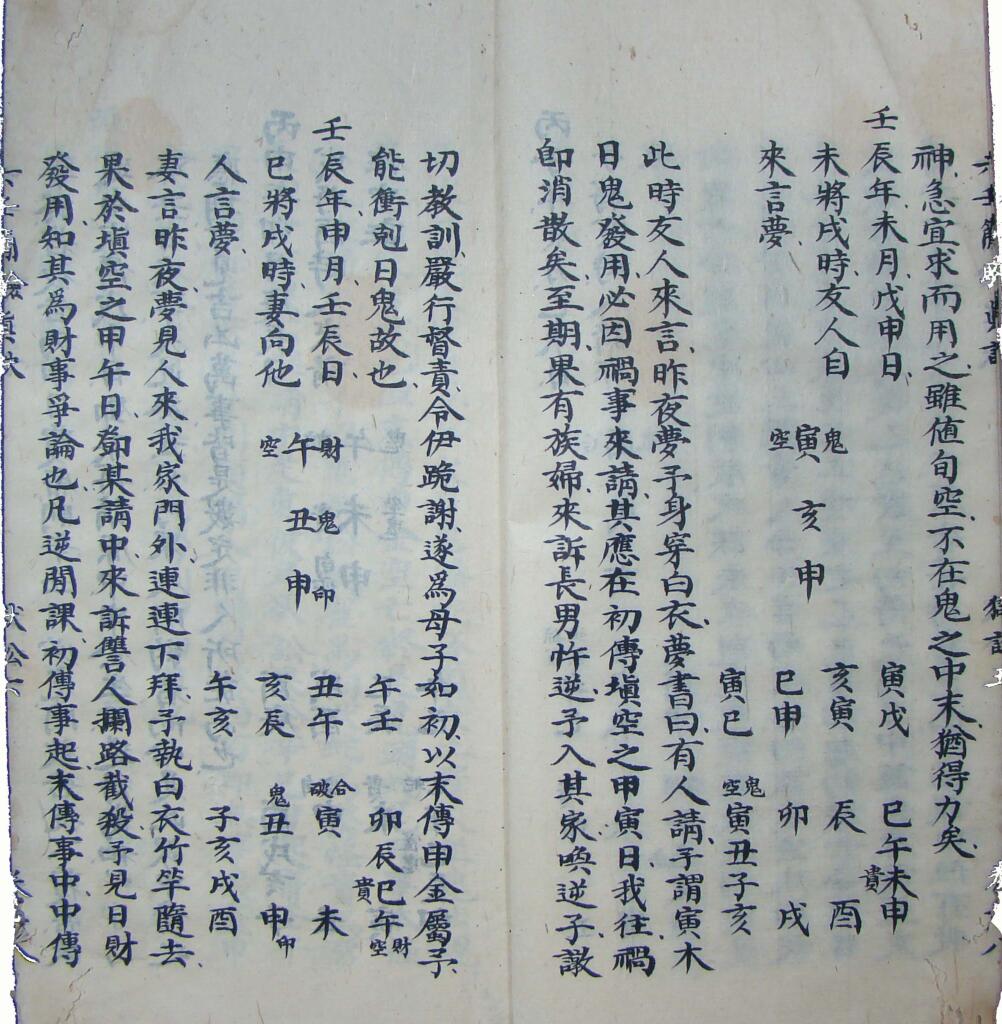 神、急宜求而用之、雖値旬空、不在鬼之中末、猶得力矣、
壬辰年、未月、戊申日、
未將戌時、友人自
來言夢、
鬼寅空
亥
申
寅戊
亥寅
巳申
寅巳
巳午未申貴
辰　酉
卯　戌
鬼空寅丑子亥
此時友人來言、昨夜夢予身穿白衣、夢書曰、有人請、予謂寅木
日鬼發用、必因禍事來請、其應在初傳塡空之甲寅日、我往、禍
卽消散矣、至期、果有族婦來訴長男忤逆、予入其家喚逆子譤
切敎訓、嚴行督責、令伊跪謝、遂爲母子如初、以末傳申金屬予、
能衝剋日鬼故也、
壬辰年、申月、壬辰日、
巳將戌時、妻向他
人言夢、
財午空
鬼丑
申印
午壬
丑午
亥辰
午亥
卯辰巳午財空貴
合破寅　未
鬼丑　申印
子亥戌酉
妻言昨夜夢見人來我家門外、連連下拜、予執白衣竹竿隨去、
果於塡空之甲午日、鄧某請中來訴讐人攔路截殺、予見日財
發用、知其爲財事爭論也、凡逆間課、初傳事起、末傳事中、中傳